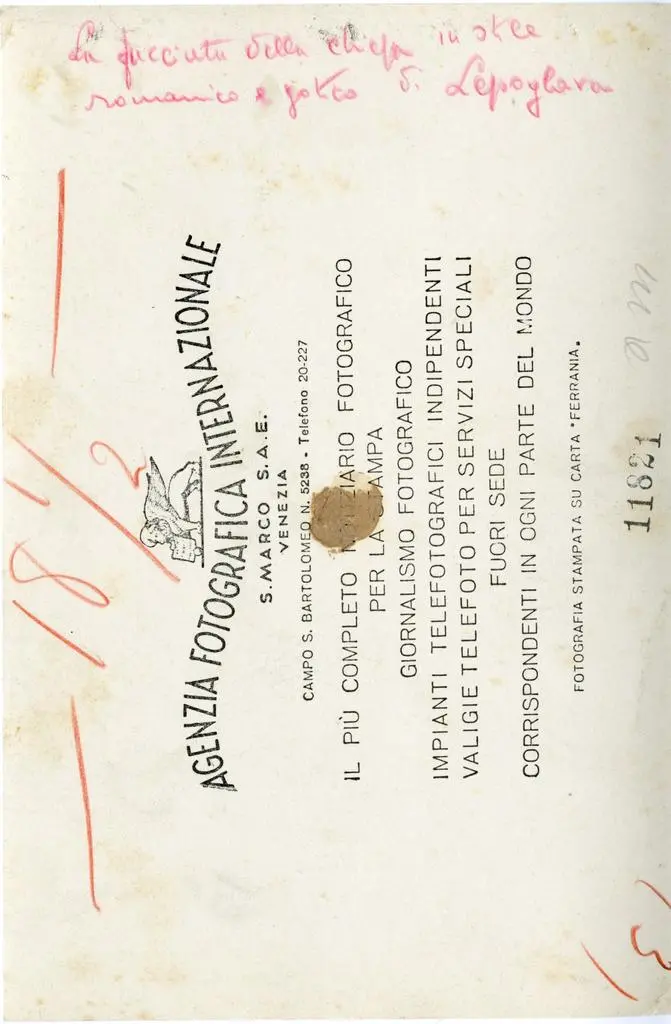 La facciata della chiesa in stile
romanico e gotico di Lepoglava
18 1/2
AGENZIA FOTOGRAFICA INTERNAZIONALE
S. MARCO S.A.E.
VENEZIA
CAMPO S. BARTOLOMEO N. 5238 - Telefono 20-227
IL PIÙ COMPLETO FOTOGRAFICO
PER LA STAMPA
GIORNALISMO FOTOGRAFICO
IMPIANTI TELEFOTOGRAFICI INDIPENDENTI
VALIGIE TELEFOTO PER SERVIZI SPECIALI
FUORI SEDE
CORRISPONDENTI IN OGNI PARTE DEL MONDO
FOTOGRAFIA STAMPATA SU CARTA "FERRANIA.
11821